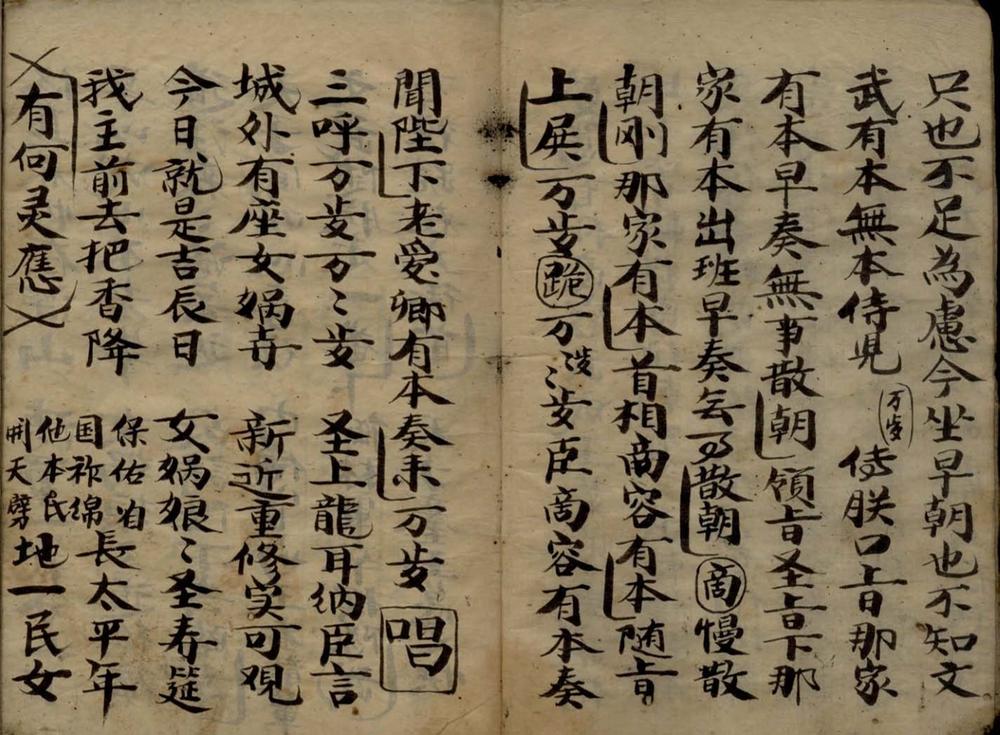 只也不足為慮今坐早朝也不知文
武有本無本侍児 万岁 侍朕口㫖那家
有本早奏無事散朝領㫖圣㫖下那
家有本出班早奏無事散朝 商 慢散
朝 剛 那家有本首相商容有本随㫖
上展万岁 跪 万岁万〻岁臣商容有本奏
聞陛下老爱卿有本奏来万岁 唱
三呼万岁万〻岁 圣上龍耳纳臣言
城外有座女娲寺 新近重修实可观
今日就是吉辰日 女娲娘〻圣寿筵
我主前去把香降 保佑 国祚绵長太平年
有何灵應 他本氏開天劈地一民女